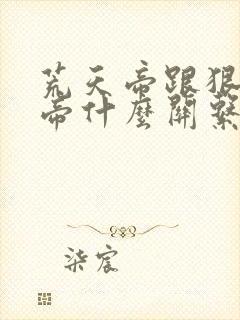 荒天帝跟狠
帝什麼關繫
柒宸